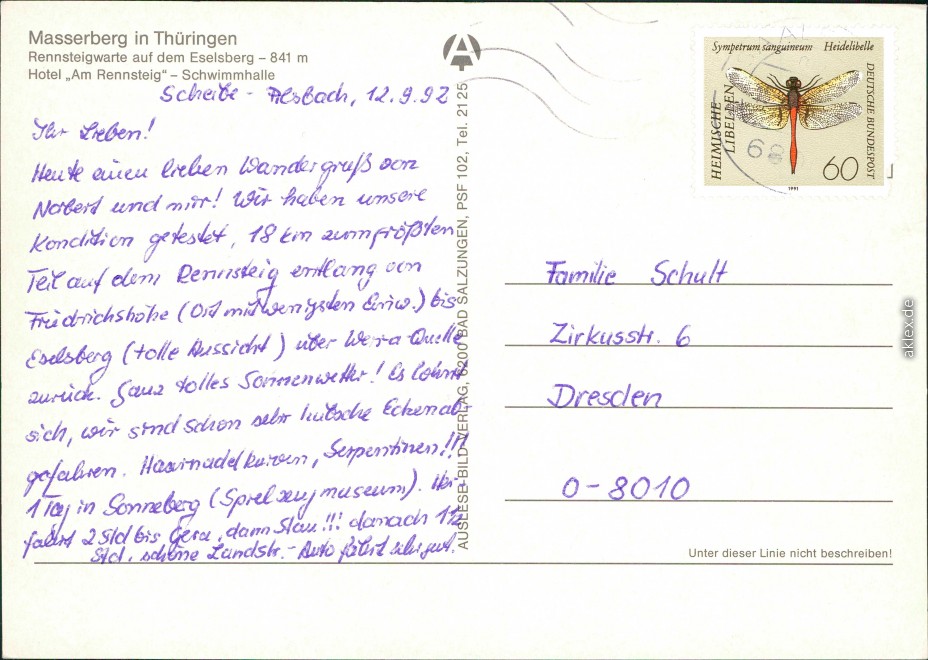 Masserberg in Thüringen
Rennsteigwarte auf dem Eselsberg – 841 m
Hotel „Am Rennsteig“ – Schwimmhalle
Scheibe - Alsbach, 12.9.92
Ihr Lieben!
Heute einen lieben Wandergruß von
Norbert und mir! Wir haben unsere
Kondition getestet, 18 km zum größten
Teil auf dem Rennsteig entlang von
Friedrichshöhe (Ort mit wenigsten Einw.) bis
Eselsberg (tolle Aussicht) über Werra-Quelle
zurück. Ganz tolles Sonnenwetter! Es lohnt
sich, wir sind schon sehr hübsche Ecken ab-
gefahren. Haarnadelkurven, Serpentinen!!!
1 Tag in Sonneberg (Spielzeugmuseum). Hin-
fahrt 2 Std bis Gera, dann Stau!!! danach 1½
Std. schöne Landstr. - Auto fährt sehr gut.
AUSLESE-BILD-VERLAG, 6200 BAD SALZUNGEN, PSF 102, Tel. 21 25
Sympetrum sanguineum Heidelibelle
HEIMISCHE
LIBELLEN
DEUTSCHE BUNDESPOST
60
1991
68
Familie Schult
Zirkusstr. 6
Dresden
O-8010
Unter dieser Linie nicht beschreiben!
aklex.de